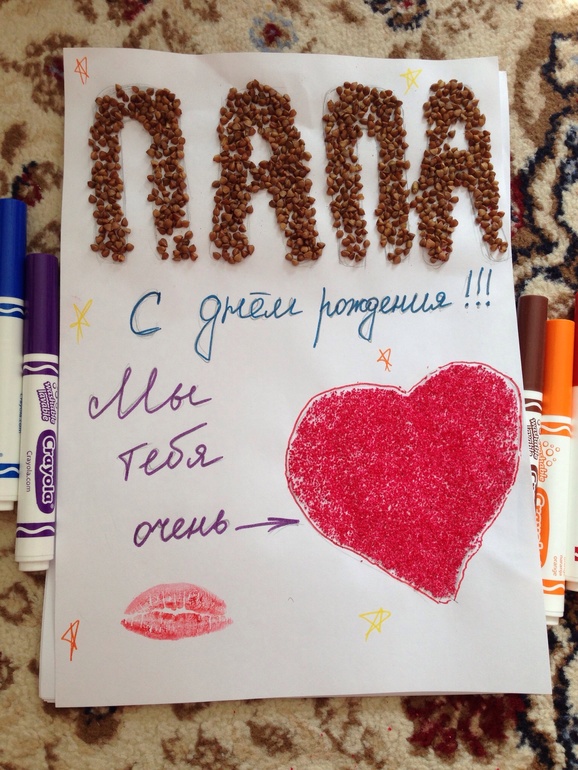 ПАПА
С днём рождения!!!
Мы
тебя
очень
Crayola
Crayola.com
washable
Crayola
washable